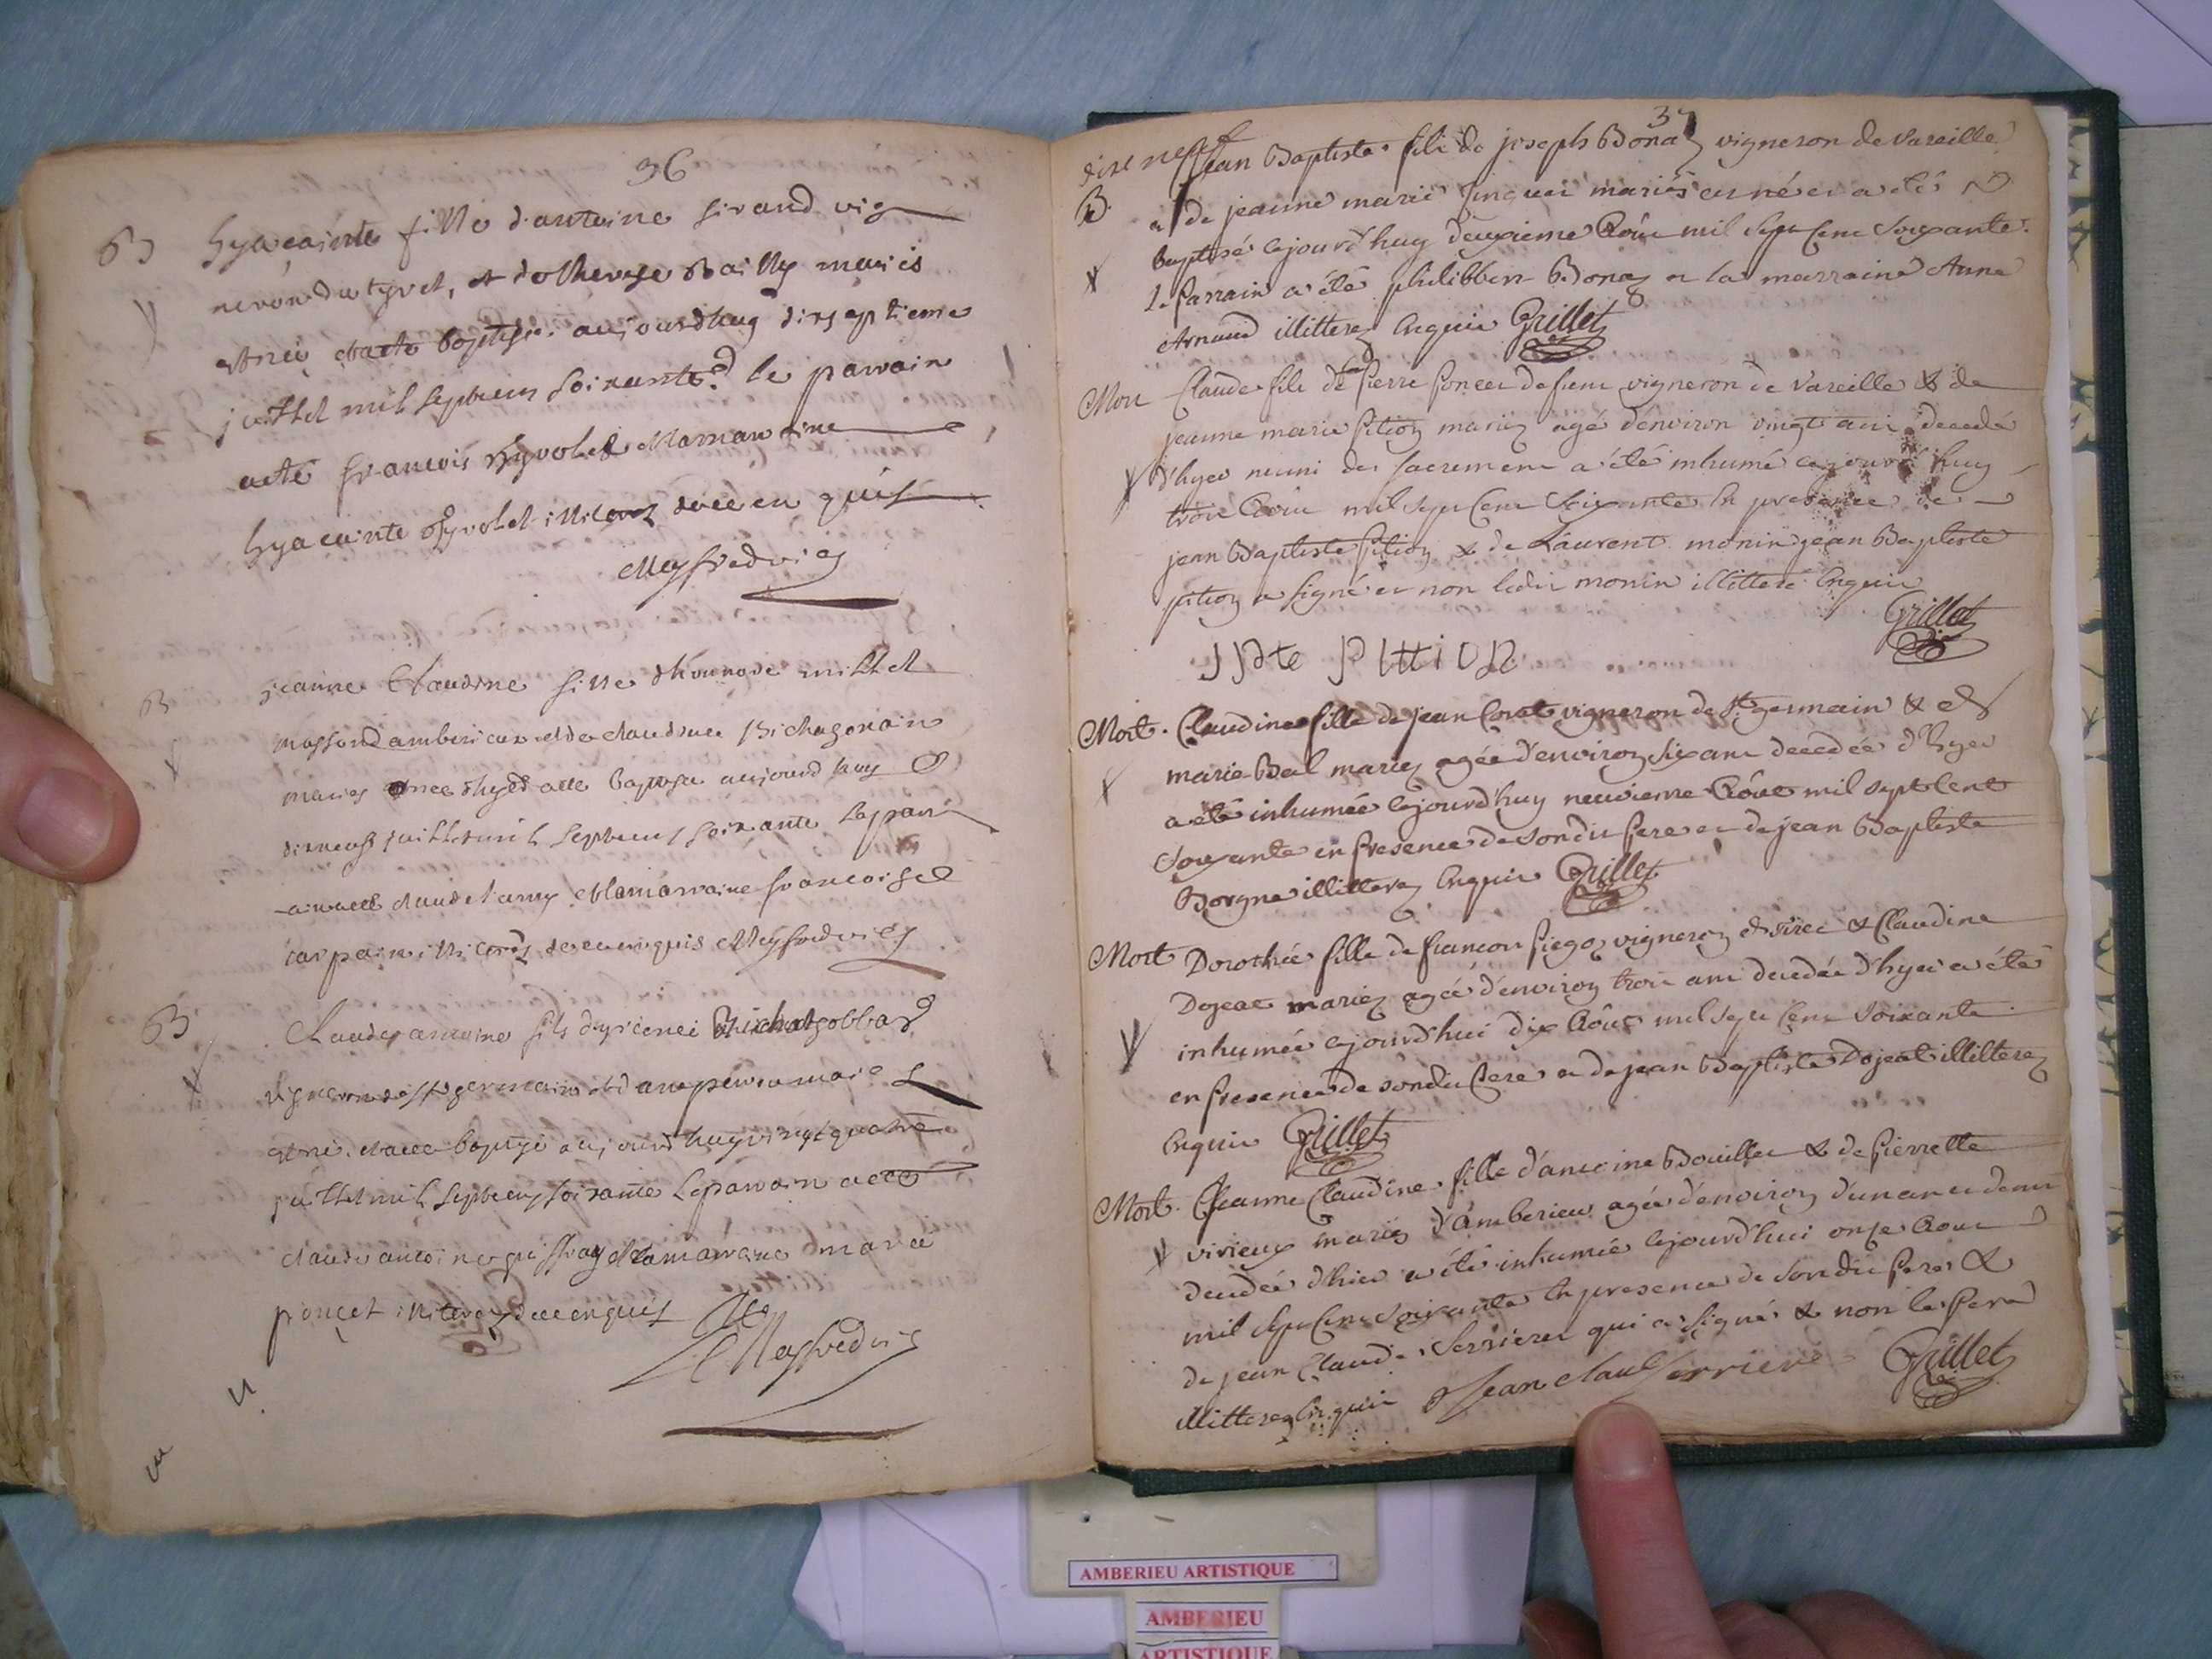 36
B hyacainte fille d'antoine sirand vig
neron du tyret, et de therese Bailly mariés
est née et a ete baptisée aujourdhuy dixseptieme
juillet mil septcens soixante le parrain
a eté francois hyvolet et la marraine
hyacainte hyvolet illiterez de ce enquis
Meyfredies
B jeanne Claudine fille millet
masson d'amberieux et de claudine
mariés née d'hyer a ete baptisée aujourd'huy
dixneuf juillet mil septcens soixante le parr
ain a eté claude et la marraine francoise
carpain illiterés de ce enquis Meyfredies
B Claude antoine fils
vigneron de st germain et d'
est né et a ete baptisé aujourd'huy vingt quatre
juillet mil septcens soixante le parrain a ete
claude antoine et la marraine marie
ponçet illiterez de ce enquis
Meyfredies
37
dixneuf
B. Jean Baptiste fils de joseph Bonaz vigneron de Vareille
et de jeanne marie mariés est né et a etés
baptisé cejourd'huy deuxieme Aôut mil sept Cent Soixante.
le parrain a été philibbert Bonaz et la marraine Anne
Arnaud illitterez Enquis Grillet
Mort Claude fils de Pierre Poncet defunt vigneron de Vareille & de
jeanne marie Pition mariez agé d'environ vingt ans decedé
d'hyer muni des sacrements a été inhumé cejourd'huy
trois Aout mil sept Cent Soixante En presence de
jean Baptiste Pition & de Laurent monin jean Baptiste
pition a signé et non ledit monin illitteré Enquis
Grillet
JBte PittiON
Mort. Claudine fille de jean Corat vigneron de St germain & de
marie Bal mariez agée d'environ six ans decedée d'hyer
a été inhumée cejourd'huy neuvieme Aôut mil sept Cent
Soixante en presence de son dit Pere et de jean Baptiste
Borgne illitterez Enquis Grillet
Mort Dorothée fille de francois vigneron & Claudine
Dojeat mariez agée d'environ trois ans decedée d'hyer a été
inhumée cejourd'hui dix Aôut mil sept Cent Soixante
en presence de son dit Pere et de jean Baptiste Dojeat illitterez
Enquis Grillet
Mort. Jeanne Claudine fille d'antoine Bouillet & de Pierrette
virieux mariez d'Amberieu agée d'environ d'un an et demi
decedée d'hier a été inhumée cejourd'hui onze Aout
mil sept Cent Soixante En presence de son dit Pere &
de jean Claude Serriere qui a signé & non le Pere
illitterez Enquis Jean claude serriere Grillet
AMBERIEU ARTISTIQUE
AMBERIEU
ARTISTIQUE